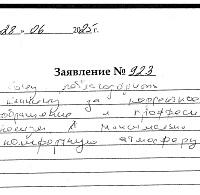 28 » 06 2025 г.
Заявление № 923
Хочу поблагодарить
клинику за корректное
обращение и професси
и максимально
комфортную атмосферу